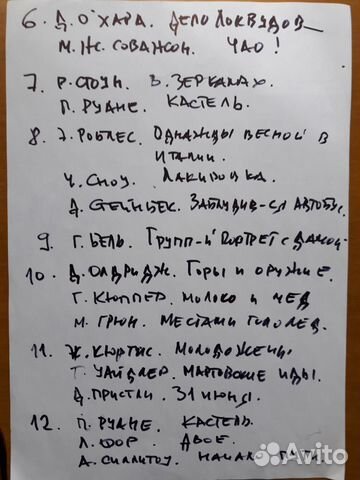 6. Д. О'ХАРА. ДЕЛО ЛОКВУДОВ
М. Ж. СОВАЖОН. ЧАО!
7. Р. СТОУН. В ЗЕРКАЛАХ.
П. РУАНЕ. КАСТЕЛЬ.
8. Э. РОБЛЕС. ОДНАЖДЫ ВЕСНОЙ В
ИТАЛИИ.
Ч. СНОУ. ЛАКИРОВКА.
Д. СТЕЙНБЕК. ЗАБЛУДИВ-СЯ АВТОБУС.
9. Г. БЕЛЬ. ГРУПП-Й ПОРТРЕТ С ДАМОЙ
10. Д. ОЛДРИДЖ. ГОРЫ И ОРУЖИЕ.
Г. КЮППЕР. МОЛОКО И МЕД
М. ГРЮН. МЕСТАМИ ГОЛОЛЕД.
11. Ж. КЮРТИС. МОЛОДОЖЕНЫ
Т. УАЙЛДЕР. МАРТОВСКИЕ ИДЫ.
Д. ПРИСТЛИ. 31 ИЮНЯ.
12. П. РУАНЕ. КАСТЕЛЬ.
Л. ФОР. ДВОЕ.
А. СИЛЛИТОУ. НАЧАЛО ПУТИ
Avito